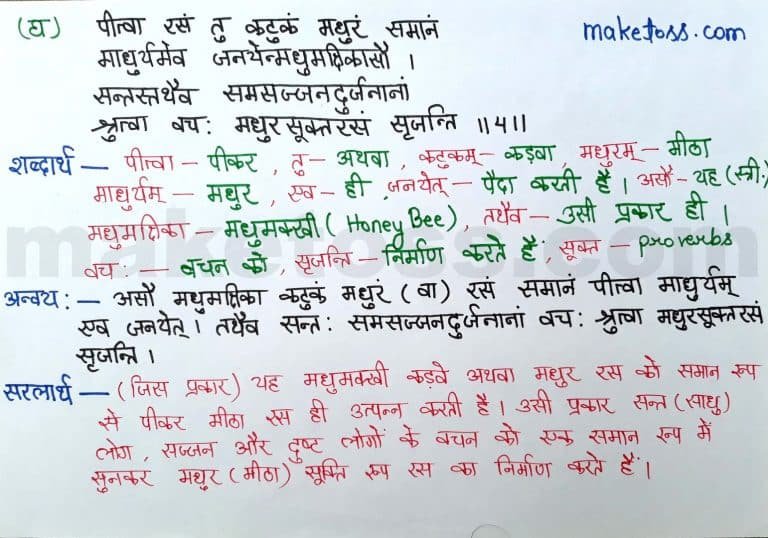 (घ) पीत्वा रसं तु कटुकं मधुरं समानं
maketoss.com
माधुर्यमेव जनयेन्मधुमक्षिकासौ ।
सन्तस्तथैव समसज्जनदुर्जनानां
श्रुत्वा वच: मधुरसूक्तरसं सृजन्ति ॥4॥
शब्दार्थ — पीत्वा – पीकर , तु – अथवा , कटुकम् – कड़वा , मधुरम् – मीठा
माधुर्यम् – मधुर , एव – ही , जनयेत् – पैदा करती है । असौ – यह (स्त्री.)
मधुमक्षिका – मधुमक्खी ( Honey Bee) , तथैव – उसी प्रकार ही ।
वच: – वचन को , सृजन्ति – निर्माण करते हैं , सूक्त – proverbs
अन्वय: – असौ मधुमक्षिका कटुकं मधुरं (वा) रसं समानं पीत्वा माधुर्यम्
एव जनयेत् । तथैव सन्त: समसज्जनदुर्जनानां वच: श्रुत्वा मधुरसूक्तरसं
सृजन्ति ।
सरलार्थ – (जिस प्रकार) यह मधुमक्खी कड़वे अथवा मधुर रस को समान रूप
से पीकर मीठा रस ही उत्पन्न करती है । उसी प्रकार सन्त (साधु)
लोग , सज्जन और दुष्ट लोगों के वचन को एक समान रूप में
सुनकर मधुर (मीठा) सूक्ति रूप रस का निर्माण करते हैं ।
maketoss.com